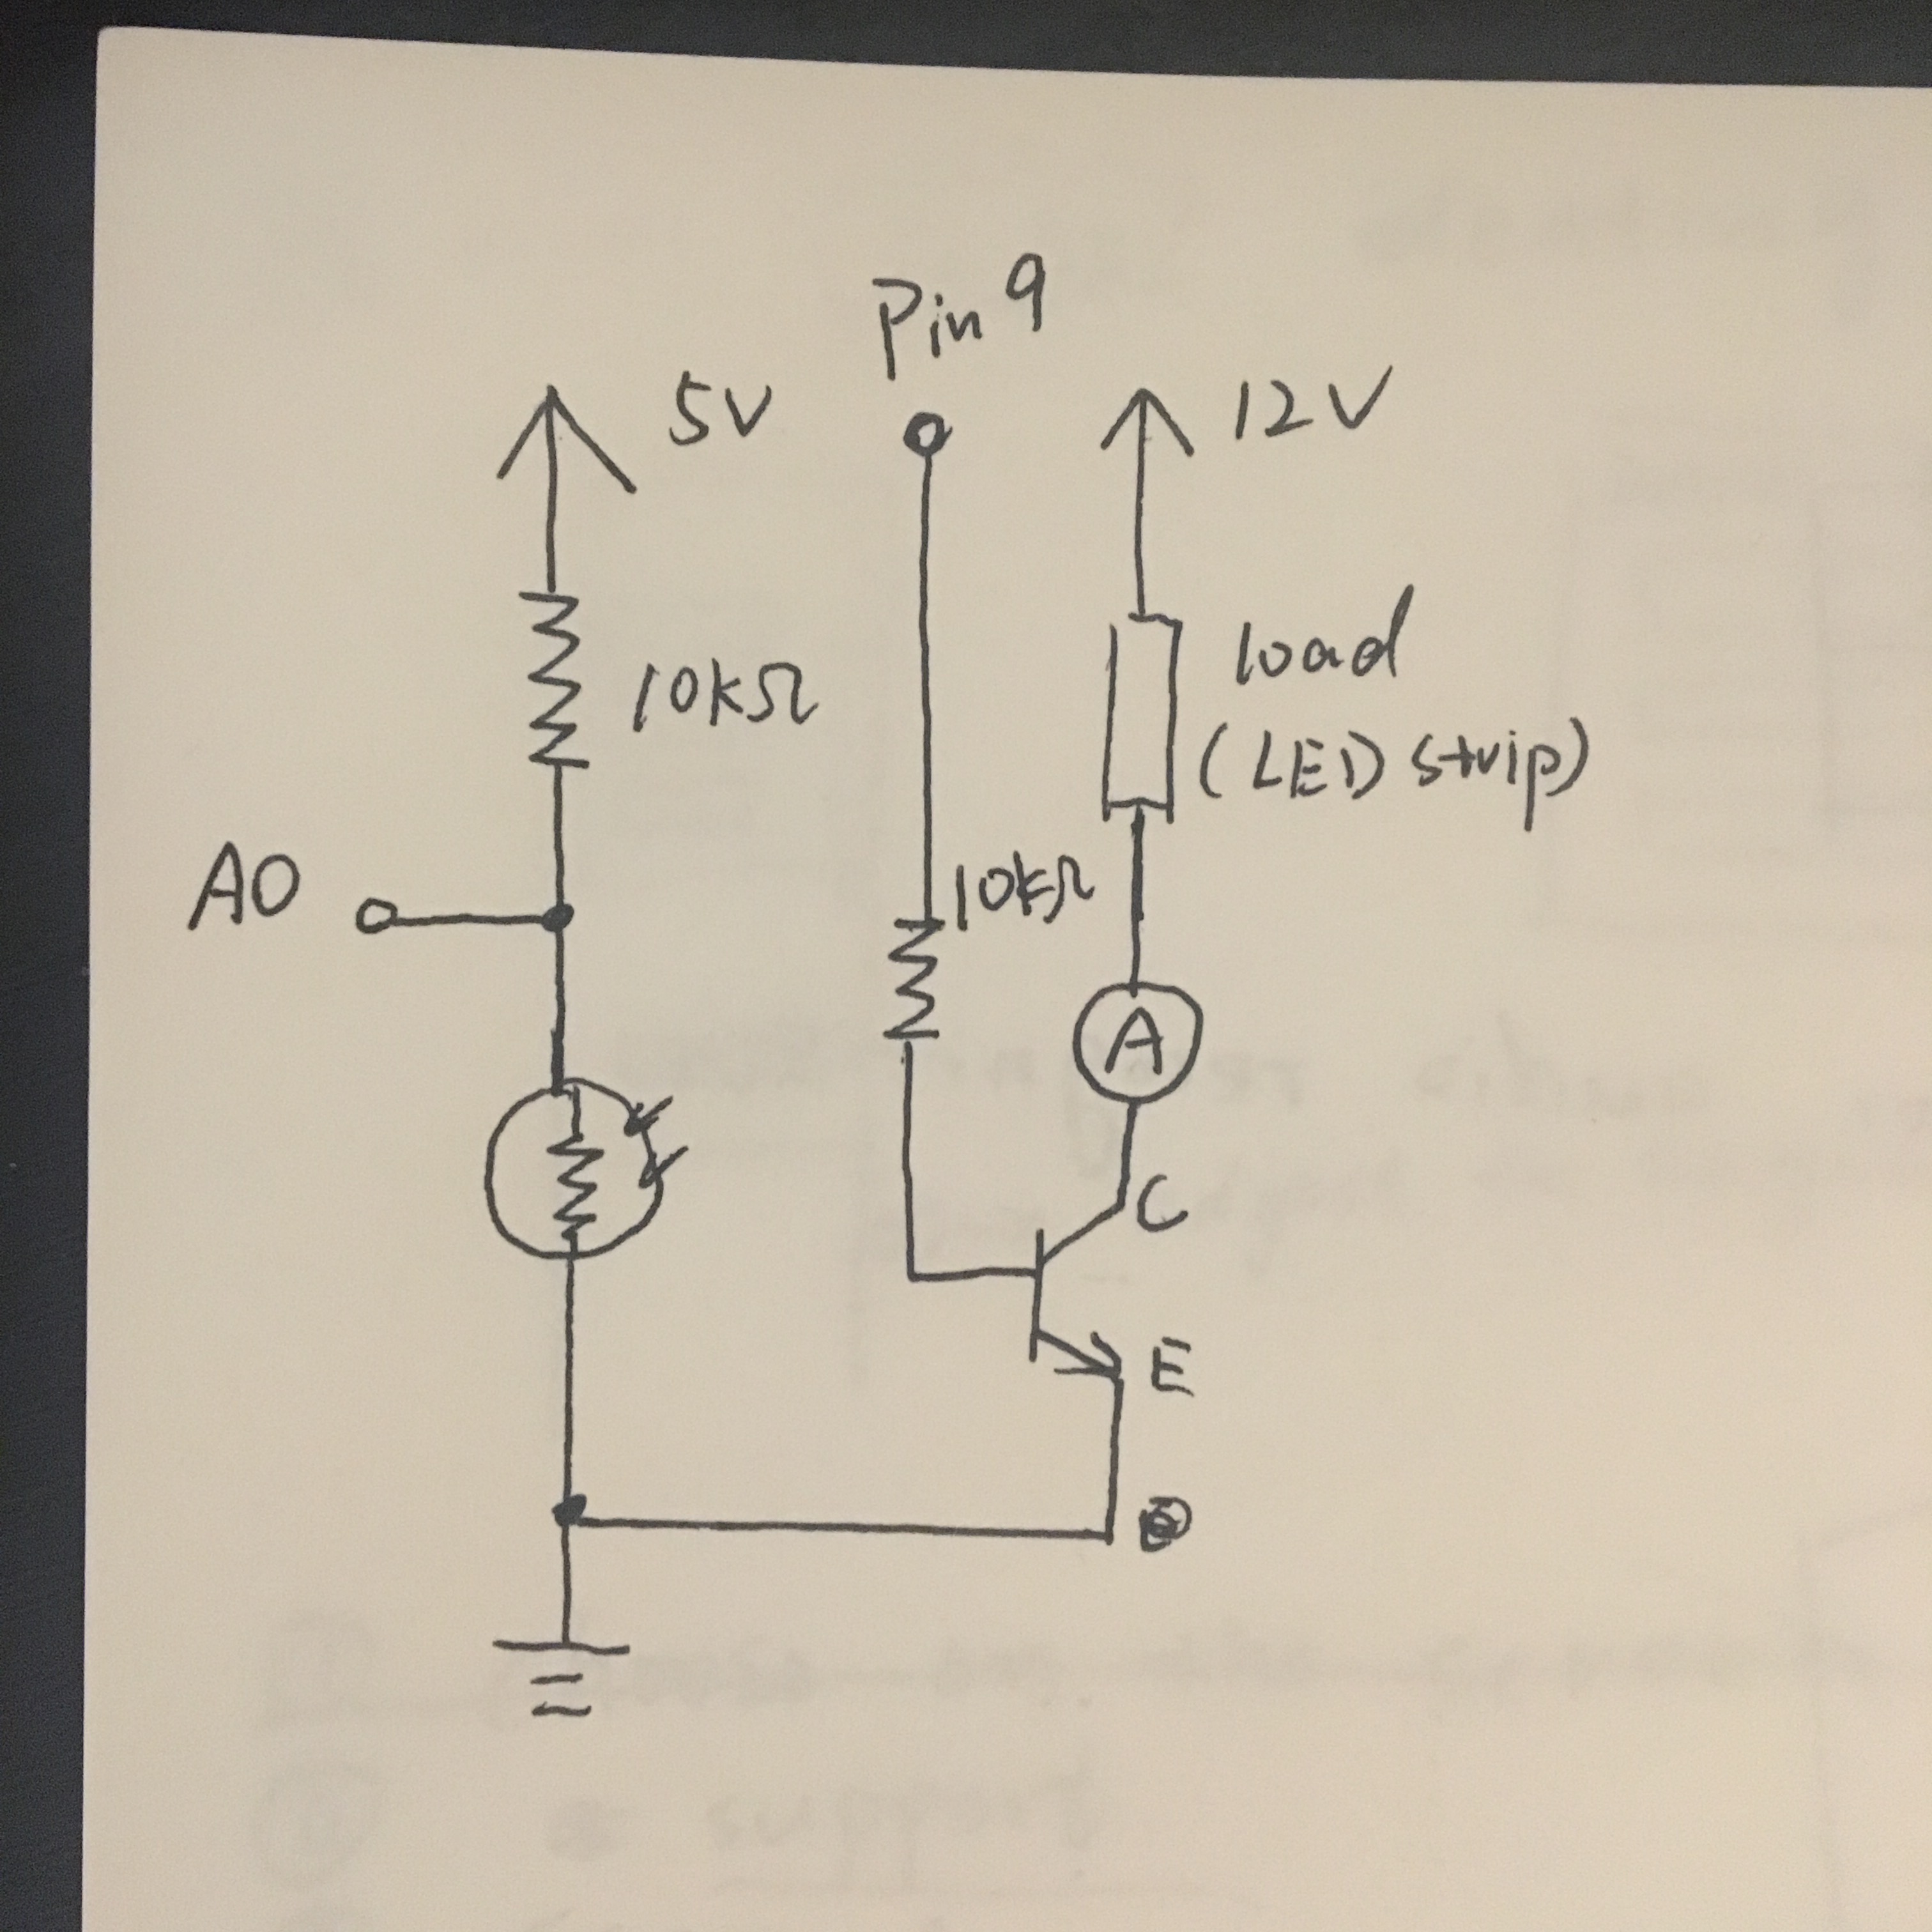 Pin 9
5V
12V
10kΩ
load
(LED strip)
A0
10kΩ
A
C
E